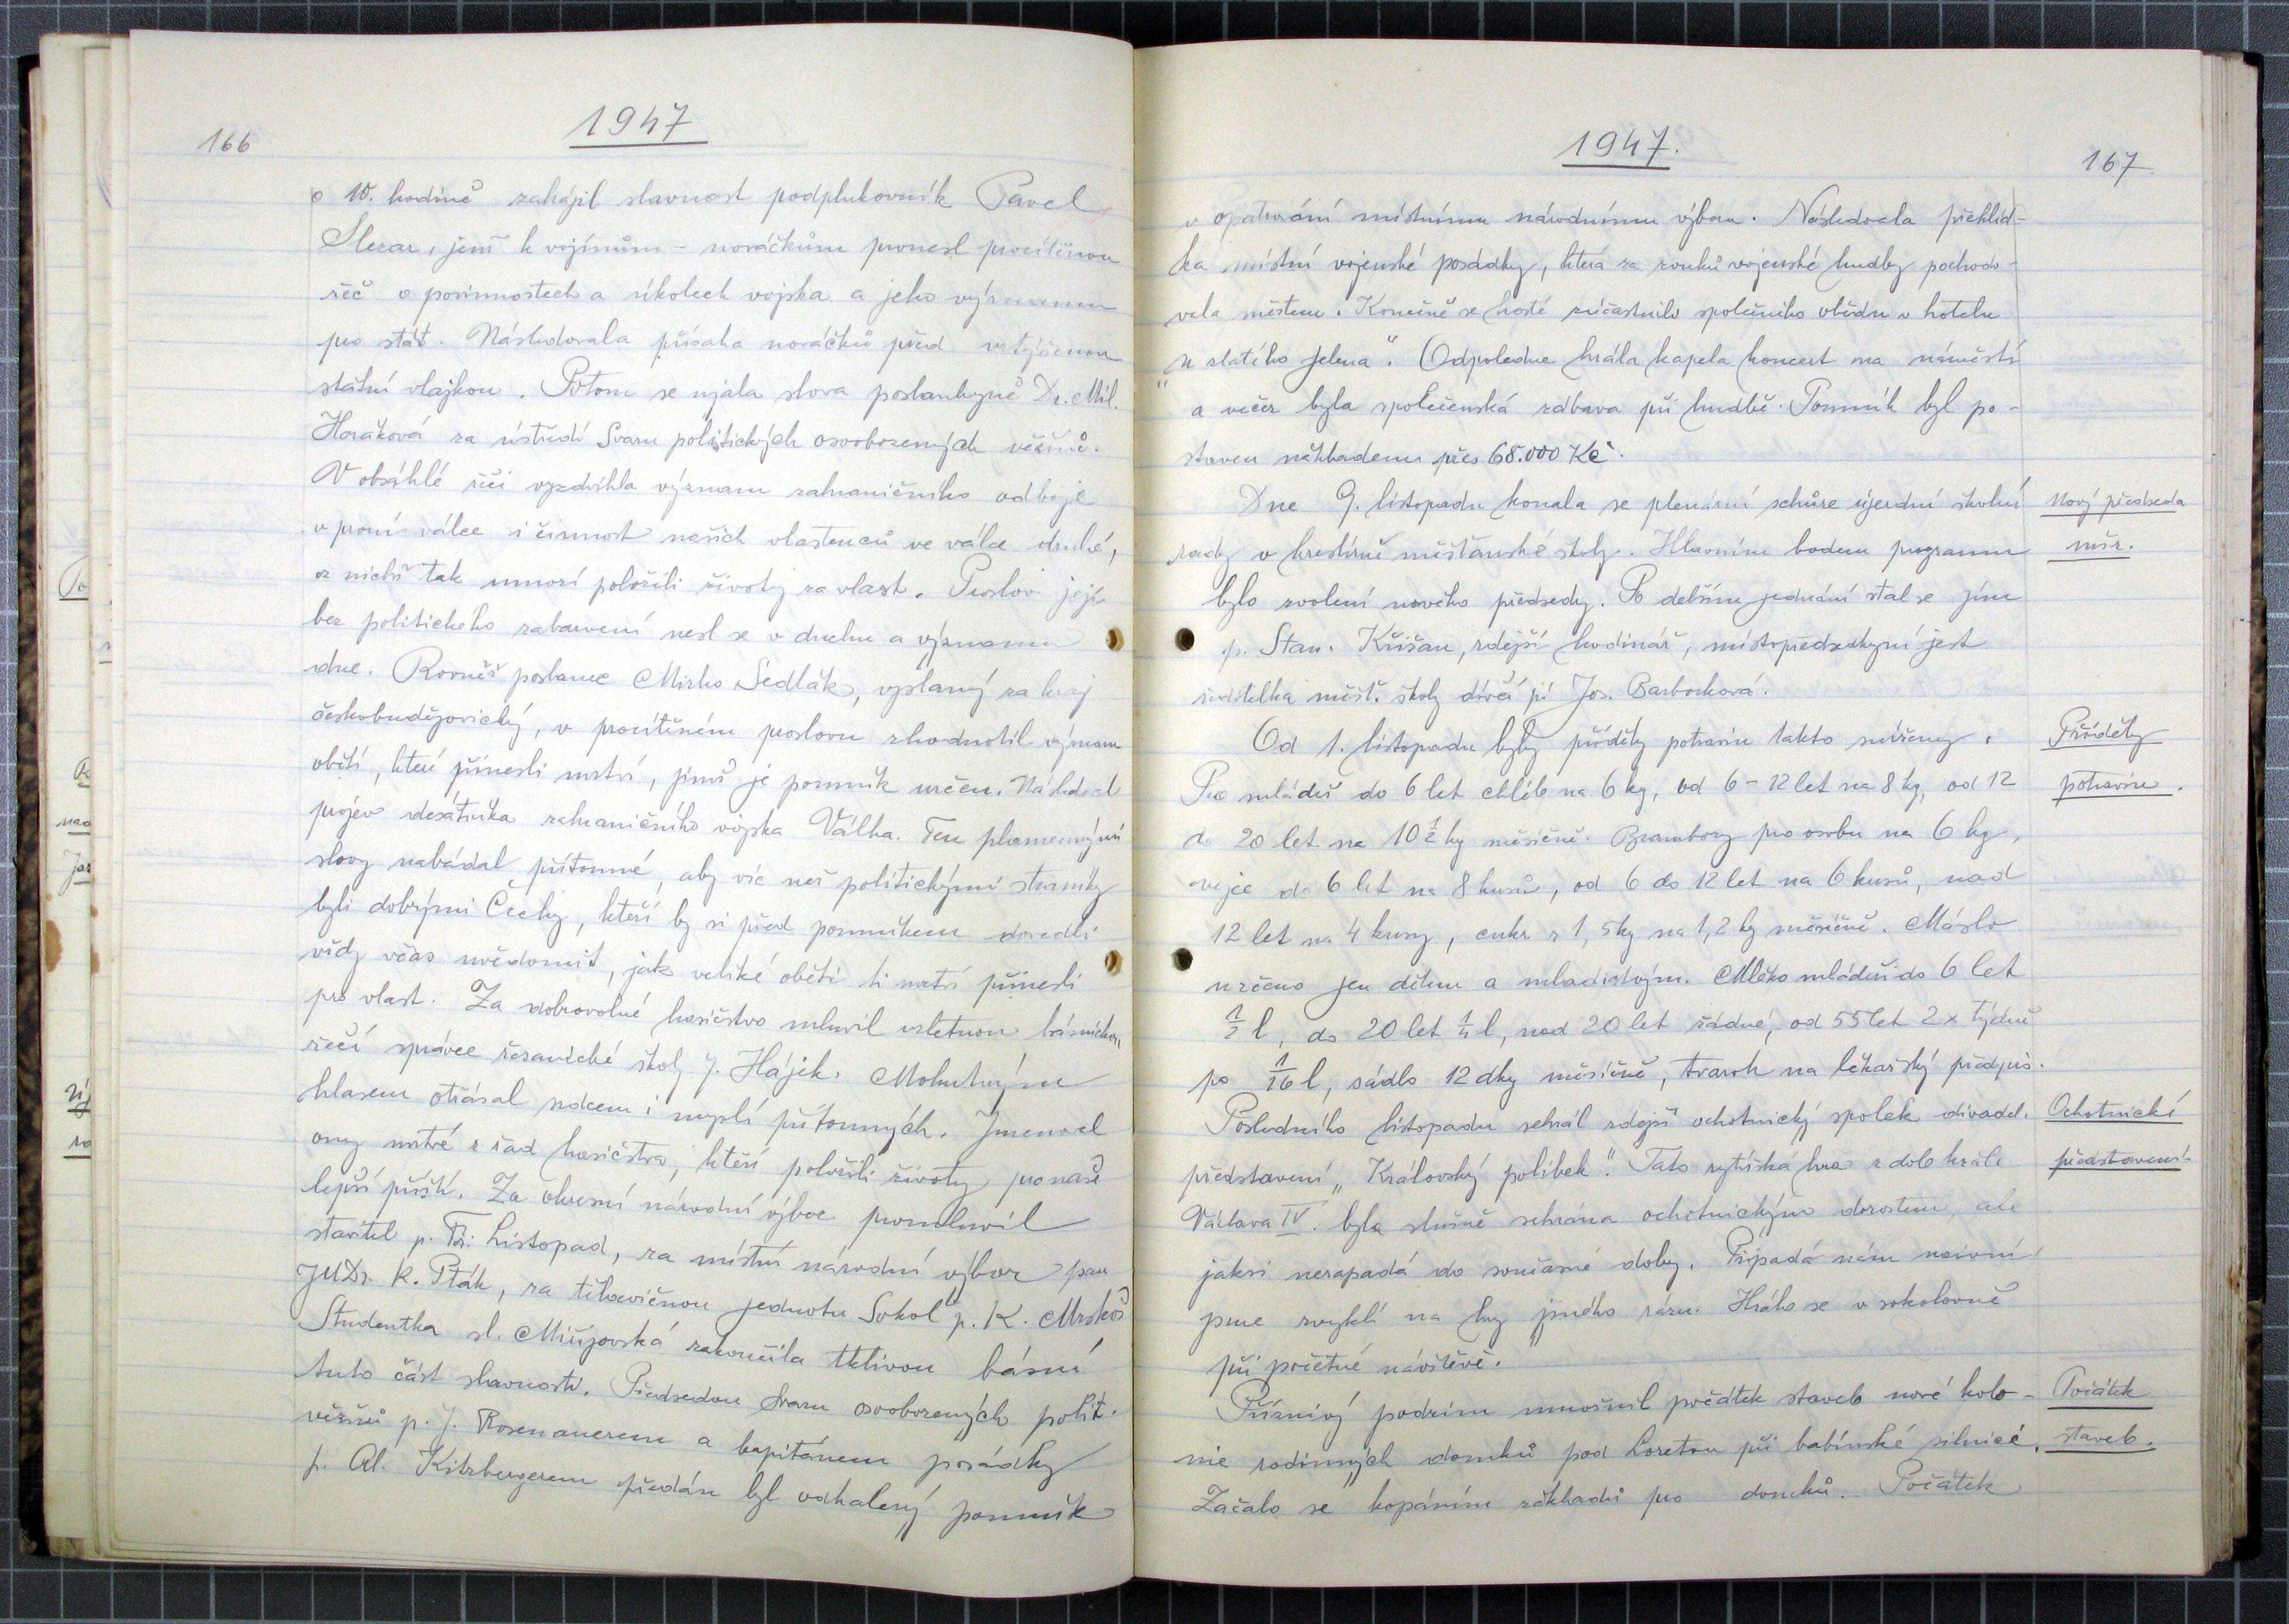 166
1947
o 10. hodině zahájil slavnost podplukovník Pavel
Slezar, jenž k vojínům - nováčkům pronesl procítěnou
řeč o povinnostech a úkolech vojska a jeho významu
pro stát. Následovala přísaha nováčků před vztyčenou
státní vlajkou. Potom se ujala slova poslankyně Dr. Mil.
Horáková za ústředí Svazu politických osvobozených vězňů.
V obsáhlé řeči vyzdvihla význam zahraničního odboje
v první válce i činnost našich vlastenců ve válce druhé,
z nichž tak mnozí položili životy za vlast. Proslov její
bez politického zabarvení nesl se v duchu a významu
dne. Rovněž poslanec Mirko Sedlák, vyslaný za kraj
českobudějovický, v procítěném proslovu zhodnotil význam
obětí, které přinesli mrtví, jimž je pomník určen. Následoval
projev desátníka zahraničního vojska Války. Ten plamennými
slovy nabádal přítomné, aby víc než politickými straníky
byli dobrými Čechy, kteří by si před pomníkem dovedli
vždy včas uvědomit, jak veliké oběti ti mrtví přinesli
pro vlast. Za dobrovolné hasičstvo mluvil vzletnou básnickou
řečí správce řezanické školy J. Hájek. Mohutným
hlasem otřásal srdcem i myslí přítomných. Jmenoval
ony mrtvé z řad hasičstva, kteří položili životy pro naše
lepší příští. Za okresní národní výbor promluvil
stavitel p. Fr. Listopad, za místní národní výbor pan
JUDr. K. Pták, za tělocvičnou jednotu Sokol p. K. Mrskoš
Studentka sl. Mičijovská zakončila tklivou básní
tuto část slavnosti. Předsedou Svazu osvobozených polit.
vězňů p. J. Rosenauerem a kapitánem posádky
p. Al. Kitzbergerem předán byl odhalený pomník
1947.
167
v opatrování místnímu národnímu výboru. Následovala přehlíd-
ka místní vojenské posádky, která za zvuků vojenské hudby pochodo-
vala městem. Konečně se hosté zúčastnili společného obědu v hotelu
„u zlatého jelena". Odpoledne hrála kapela koncert na náměstí
a večer byla společenská zábava při hudbě. Pomník byl po-
staven nákladem přes 68.000 Kč.
Dne 9. listopadu konala se plenární schůze újezdní školní
rady v kreslírně měšťanské školy. Hlavním bodem programu
bylo zvolení nového předsedy. Po delším jednání stal se jím
p. Stan. Křišan, zdejší hodinář, místopředsedkyní jest
ředitelka měšť. školy dívčí pí Jos. Barborková.
Nový předseda
mšr.
Od 1. listopadu byly příděly potravin takto sníženy:
Pro mládež do 6 let chléb na 6 kg, od 6 - 12 let na 8 kg, od 12
do 20 let na 10 1/2 kg měsíčně. Brambory pro osobu na 6 kg,
vejce do 6 let na 8 kusů, od 6 do 12 let na 6 kusů, nad
12 let na 4 kusy, cukr z 1,5 kg na 1,2 kg měsíčně. Máslo
určeno jen dětem a mladistvým. Mléko mládeži do 6 let
1/2 l, do 20 let 1/4 l, nad 20 let žádné, od 55 let 2 x týdně
po 1/16 l, sádlo 12 dkg měsíčně, tvaroh na lékařský předpis.
Příděly
potravin.
Posledního listopadu sehrál zdejší ochotnický spolek divadel.
představení „Královský polibek". Tato rytířská hra z dob krále
Václava IV. byla slušně sehrána ochotnickým dorostem, ale
jaksi nezapadá do současné doby. Připadá nám naivní,
jsme zvyklí na hry jiného rázu. Hrálo se v sokolovně
při početné návštěvě.
Ochotnické
představení.
Příznivý podzim umožnil počátek staveb nové kolo-
nie rodinných domků pod Loretou při babínské silnici.
Začalo se kopáním základů pro domků. Počátek
Počátek
staveb.